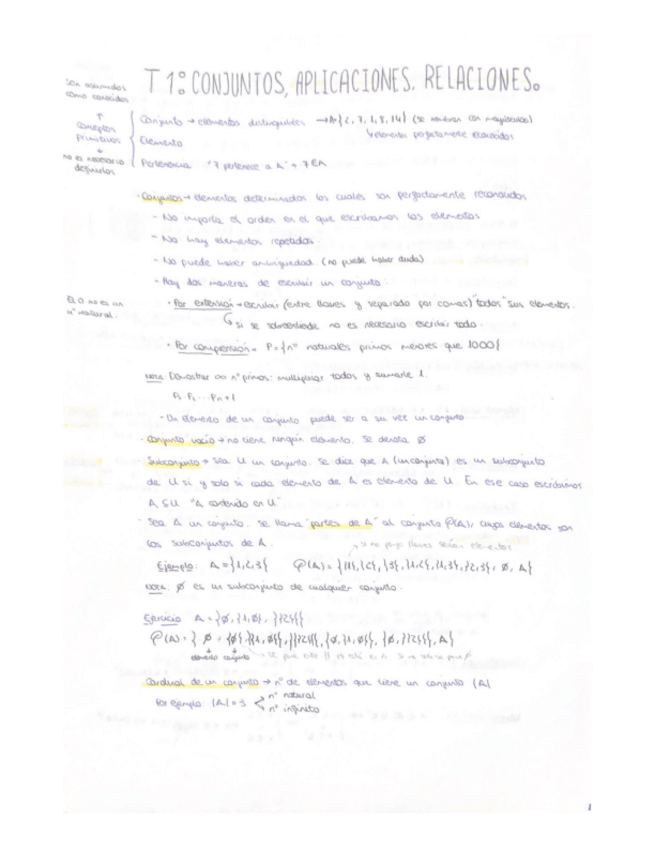 T1: CONJUNTOS, APLICACIONES, RELACIONES.
son asumidos
como conocidos
↑
conceptos
primitivos
↓
no es necesario
definirlos
Conjunto → elementos distinguibles → A={2, 7, 1, 8, 14} (se nombran con mayúsculas)
elementos perfectamente reconocidos
Elemento
Pertenencia "7 pertenece a A" → 7∈A
· Conjuntos → elementos determinados los cuales son perfectamente reconocidos
- No importa el orden en el que escribamos los elementos
- No hay elementos repetidos
- No puede haber ambigüedad. (no puede haber duda)
- Hay dos maneras de escribir un conjunto
El 0 no es un
nº natural.
· Por extensión → escribir (entre llaves y separado por comas) "todos" sus elementos.
si se sobreentiende no es necesario escribir todo
· Por comprensión → P={nº naturales primos menores que 1000}
NOTA: Demostrar ∞ nº primos: multiplicar todos y sumarle 1.
P₁·P₂...Pn+1
- Un elemento de un conjunto puede ser a su vez un conjunto
· Conjunto vacío → no tiene ningún elemento. Se denota ∅
· Subconjunto → Sea U un conjunto. Se dice que A (un conjunto) es un subconjunto
de U si y solo si cada elemento de A es elemento de U. En ese caso escribimos
A⊆U "A contenido en U"
· Sea A un conjunto. Se llama "partes de A" al conjunto P(A), cuyos elementos son
los subconjuntos de A.
si no pongo llaves serían elementos
Ejemplo: A={1,2,3} P(A)={{1},{2},{3},{1,2},{1,3},{2,3}, ∅, A}
NOTA: ∅ es un subconjunto de cualquier conjunto.
Ejercicio A={∅,{1,∅},{{2}}}
P(A)={ ∅, {∅},{{1,∅}},{{{2}}},{∅,{1,∅}},{∅,{{2}}}, A}
elemento conjunto
Cardinal de un conjunto → nº de elementos que tiene un conjunto |A|
Por ejemplo: |A|=3 < nº natural
nº infinito
1